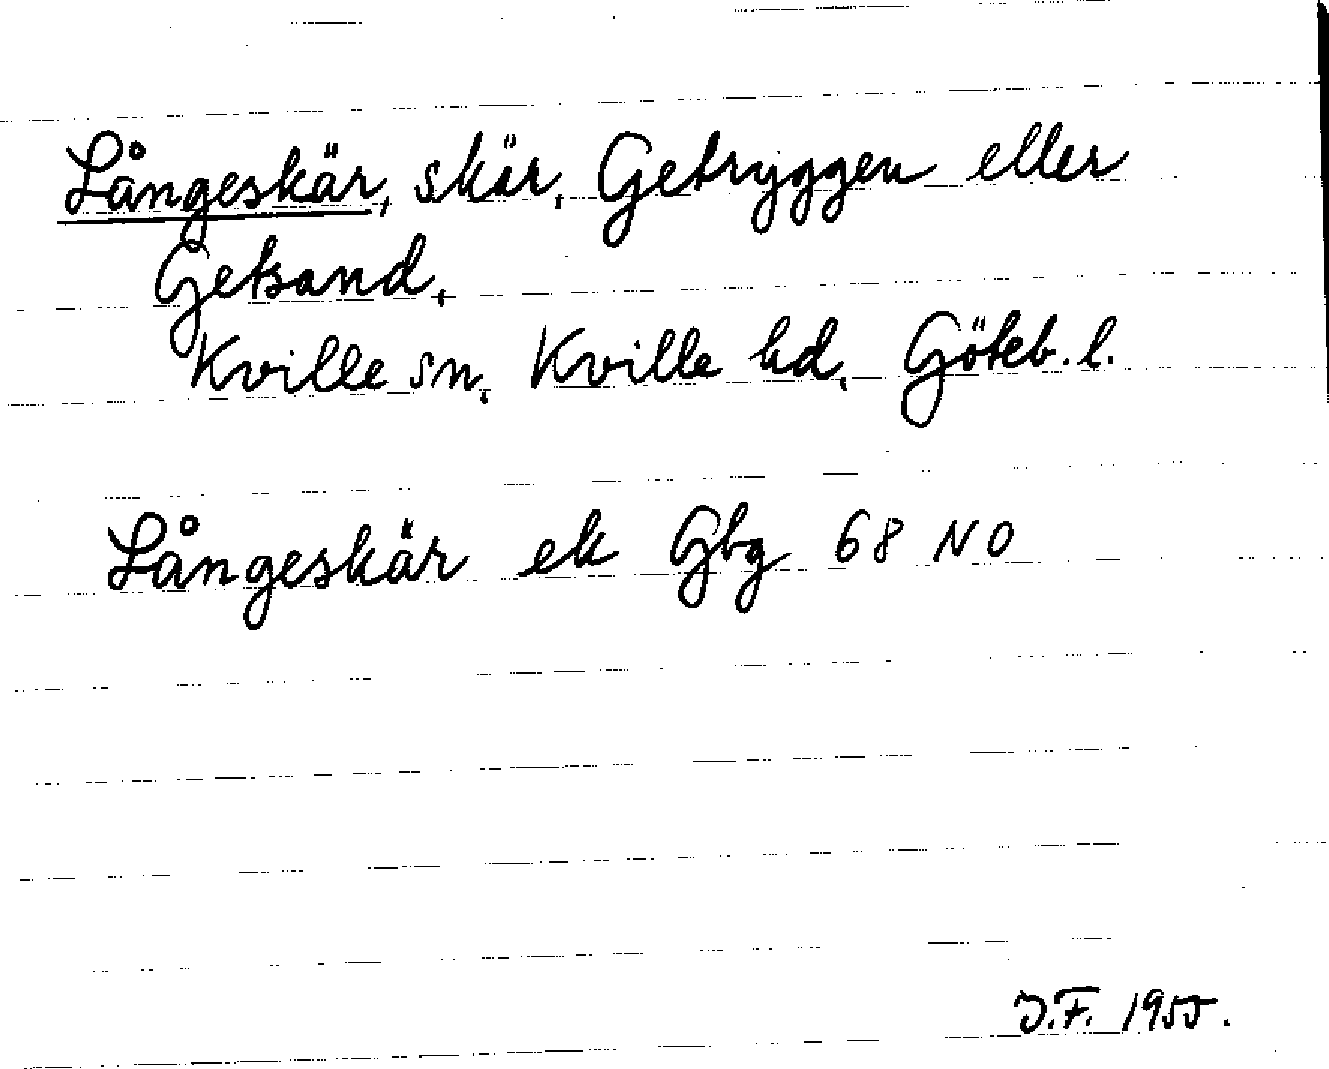 Långeskär, skär, Getryggen eller
Getsand,
Kville sn, Kville hd, Göteb. l.
Långeskär ek Gbg 68 NO
J.F. 1955.